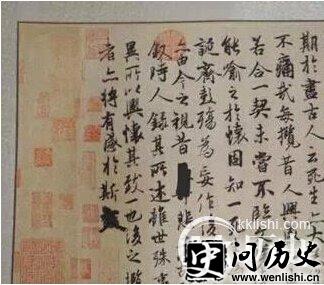 期於盡古人云死生亦
不痛哉每攬昔人興
若合一契未嘗不臨
能喻之於懷固知一
誕齊彭殤為妄作後
由今之視昔 悲
敘時人錄其所述雖世殊
異所以興懷其致一也後之攬
者亦將有感於斯
问历史
www.wenlishi.cn